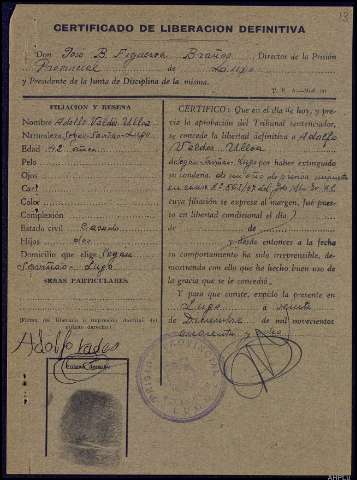 CERTIFICADO DE LIBERACION DEFINITIVA
Don Jose B. Figueroa Director de la Prisión
Provincial de Lugo
y Presidente de la Junta de Disciplina de la misma.
FILIACION Y RESEÑA
Nombre Adolfo Valdes Ulloa
Naturaleza Lugo
Edad 42 años
Pelo
Ojos
Cara
Color
Complexión
Estado civil Casado
Hijos dos
Domicilio que elige
Lugo
SEÑAS PARTICULARES
(Firma del liberado e impresión dactilar del
pulgar derecho)
Adolfo Valdes
CERTIFICO: Que en el día de hoy, y pre-
via aprobación del Tribunal sentenciador,
se concede la libertad definitiva a Adolfo
Valdes Ulloa
Lugo por haber extinguido
su condena de un año de prision
en causa
cuya filiación se expresa al margen, fué pues-
to en libertad condicional el día
de de
y desde entonces a la fecha
su comportamiento ha sido irreprensible, de-
mostrando con ello que ha hecho buen uso de
la gracia que se le concedió.
Y para que conste, expido la presente en
Lugo a
de Diciembre de mil novecientos
cuarenta y